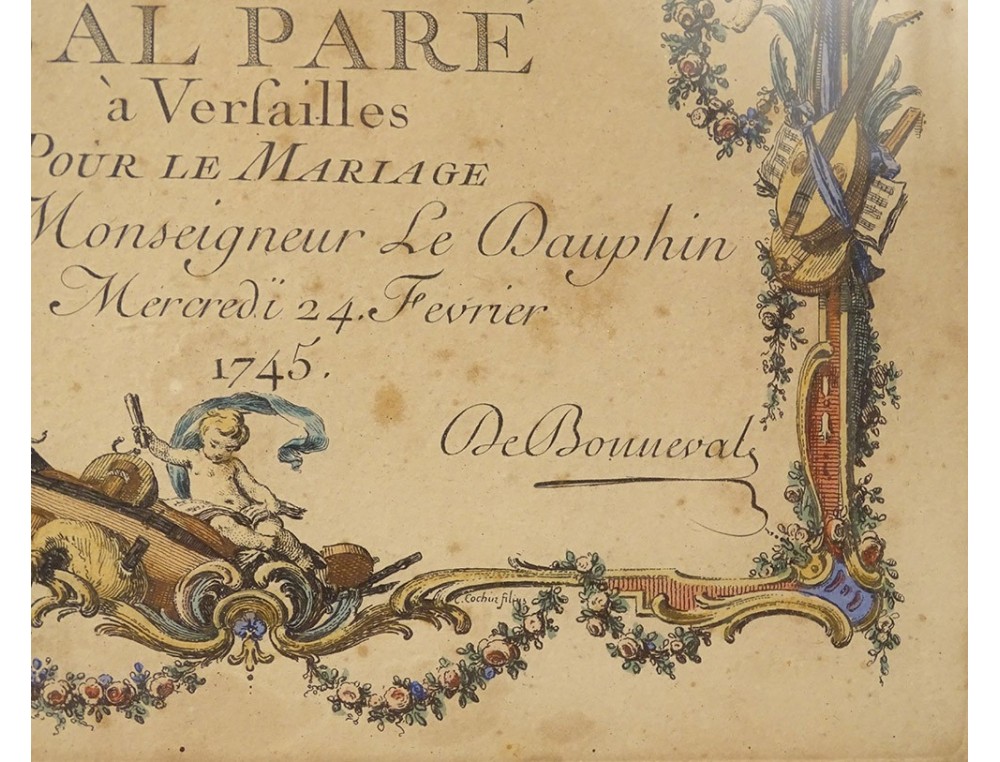 AL PARÉ
à Verſailles
POUR LE MARIAGE
Monseigneur Le Dauphin
Mercredï 24. Fevrier
1745.
De Bonneval
Cochin filius